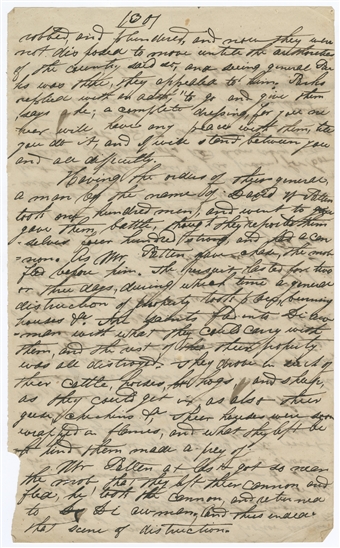 (30)
robbed, and plundered, and now they were
not disposed to move untill the authorities
of the county did it, and being general Par
ks was there, they appealed to him, Parks
replied with an oath "to go and give them
says he; a complete dressing, for you ne
ver will have any peace with them, till
you do it, and I will stand between you
and all difficulty.
Having the orders of their general,
a man by the name of David W Patten
took one hundred men, and went to
gave them battle, though they reported them
selves over hundred strong, and had a can
non. As Mr Patten gave chase the mob
fled before him. The pursuit lasted for two
or three days, during which time a general
distruction of property took place, burning
houses &c The families fled into Diaw
man with what they could carry with
them, and the rest of their property
was all distroyed. They drove in such of
their cattle, horses, hogs, and sheep,
as they could get in, as also their
geese, chickens &c, their houses were soon
wrapped in flames, and what they left be
hind them made a prey of
Mr Patten at last got so near
the mob, that they left their cannon and
fled, he took the cannon, and returned
to Di awman, and thus ended
that scene of distruction.